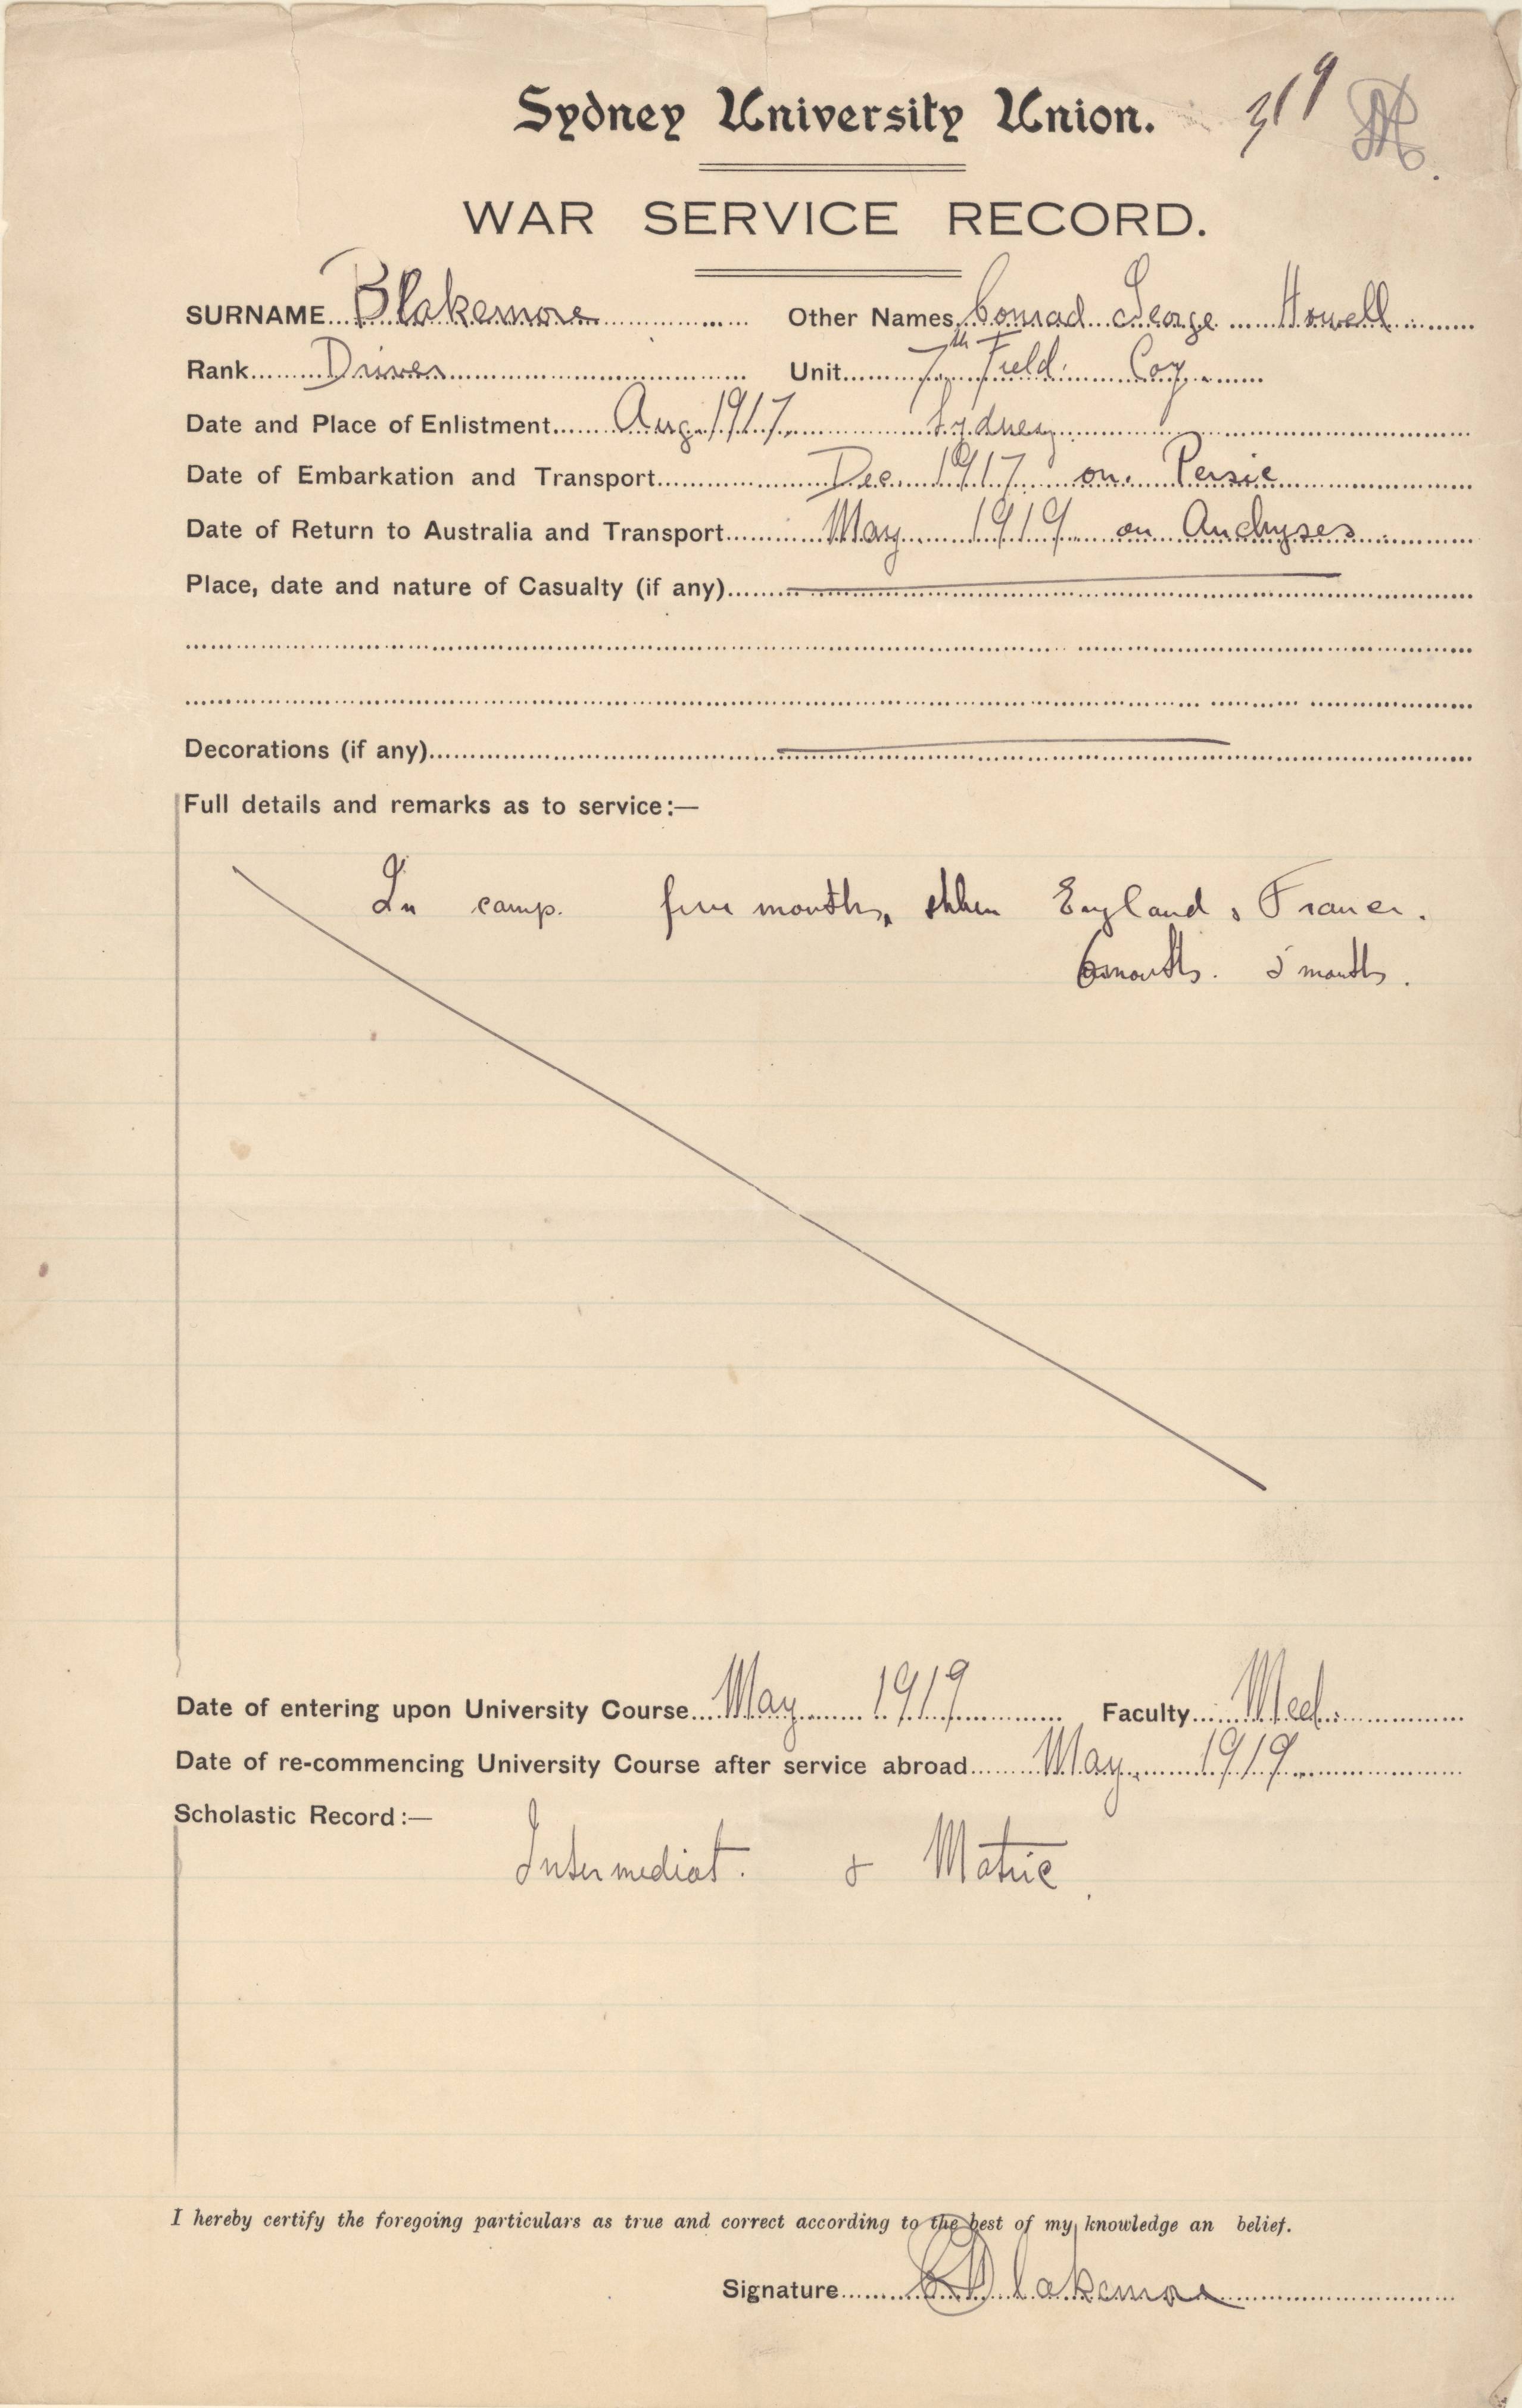 Sydney University Union. 319
WAR SERVICE RECORD.
SURNAME Blakemore Other Names Conrad George Howell
Rank Driver Unit 7th Field Coy
Date and Place of Enlistment Aug 1917 Sydney
Date of Embarkation and Transport Dec 1917 on Persic
Date of Return to Australia and Transport May 1919 on Anchyses
Place, date and nature of Casualty (if any)
Decorations (if any)
Full details and remarks as to service:—
In camp. five months, then England, France.
6 months. 5 months.
Date of entering upon University Course May 1919 Faculty Med.
Date of re-commencing University Course after service abroad May 1919
Scholastic Record:—
Intermediat. & Matric.
I hereby certify the foregoing particulars as true and correct according to the best of my knowledge an belief.
Signature C Blakemore